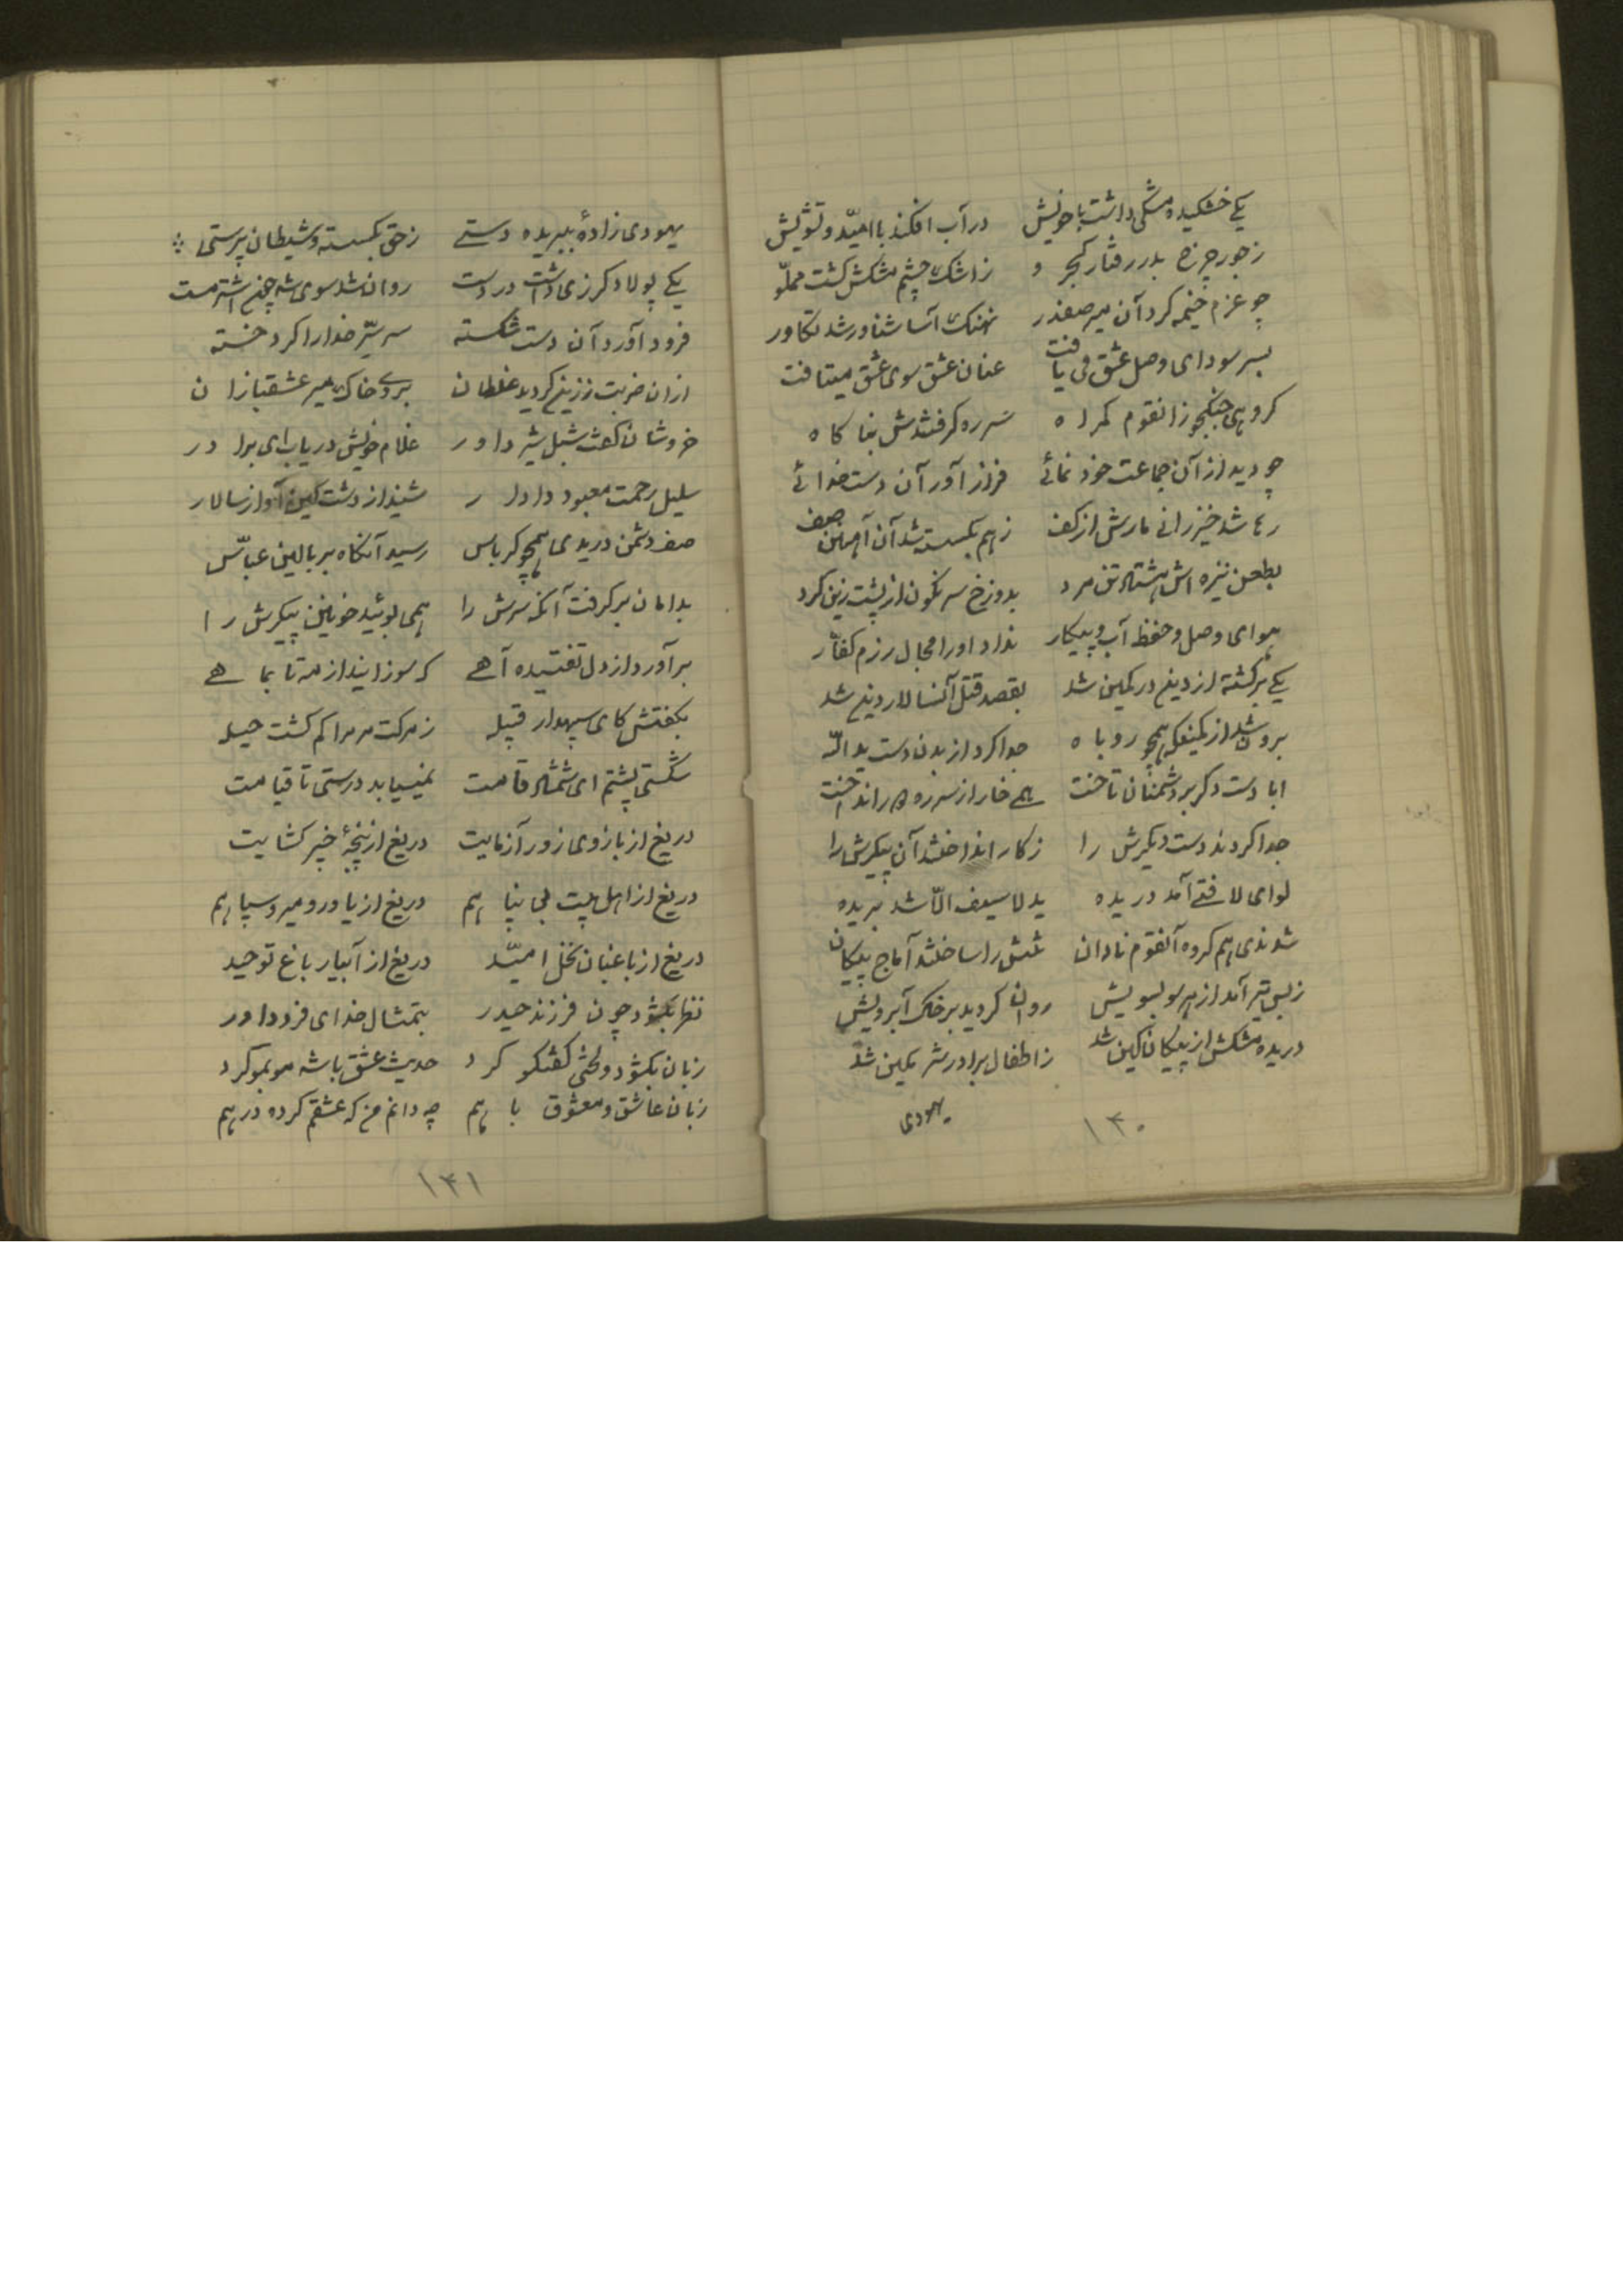 یکی خشکیده مشکی داشت با خویش در آب افکند با امیّد و تشویش
ز جور چرخ بد رفتار کجرو ز اشک چشم مشکش گشت مملّو
چو عزم خیمه کرد آن میر صفدر نهنگ آسا شناور شد تکاور
بسر سودای وصل عشق می یافت عنان عشق سوی عشق میتافت
کروهی جنگجو زانقوم کمراه سر ره کرفتندش بنا کاه
چو دید از آن جماعت خود نمائی فراز آورد آن دست خدائی
رها شد خیزرانی مارش از کف ز هم بگسسته شد آن آهنین صف
بطعن نیزه اش هشتاد تن مرد بدوزخ سرنگون از پشت زین کرد
هوای وصل و حفظ آب و پیکار نداد او را مجال رزم کفّار
یکی برگشته از دین در کمین شد بقصد قتل آنسالار دین شد
برون شد از کمینگه همچو روباه جدا کرد از بدن دست ید الله
ابا دست دکر بر دشمنان تاخت همی خار از سر ره را انداخت
جدا کردند دست دیگرش را ز کار انداختند آن پیکرش را
لوای لا فتی آمد دریده ید لا سیف الّا شد بریده
شدندی هم کروه آنقوم نادان تنش را ساختند آماج پیکان
ز بس تیر آمد از هر سو بسویش روان کردید بر خاک آبرویش
دریده مشکش از پیکان کین شد ز اطفال برادر شرمکین شد
یهودی
۱۳۰
یهودی زادهٔ ببریده دستی ز حق بگسسته و شیطان پرستی
یکی پولاد کرزی داشت در دست روان شد سوی شه چون اشتر مست
فرود آورد آن دست شکسته سر سرّ خدا را کرد خسته
از آن ضربت ز زین کردید غلطان بروی خاک میر عشقبازان
خروشان گفت شبل شیر داور غلام خویش دریاب ای برادر
سلیل رحمت معبود دادار شنید از دشت کین آواز سالار
صف دشمن دریدی همچو کرباس رسید آنگاه بر بالین عبّاس
بدامان بر کرفت آنکه سرش را همی بوئید خونین پیکرش را
بر آورد از دل تفتیده آهی که سوزانید از مه تا بماهی
بکفتش کای سپهدار قبیله ز مرگت مر مرا کم کشت حیله
شکستی پشتم ای شمشاد قامت نمییابد درستی تا قیامت
دریغ از بازوی زور آزمایت دریغ از پنجهٔ خیبر کشایت
دریغ از اهل بیت بی پناهم دریغ از یاور و میر و سپاهم
دریغ از باغبان نخل امیّد دریغ از آبیار باغ توحید
نظر بگشود چون فرزند حیدر بتمثال خدای فرد داور
زبان بکشود و لختی کفتکو کرد حدیث عشق با شه موبمو کرد
زبان عاشق و معشوق با هم چه دانم من که عشقم کرده درهم
۱۳۱